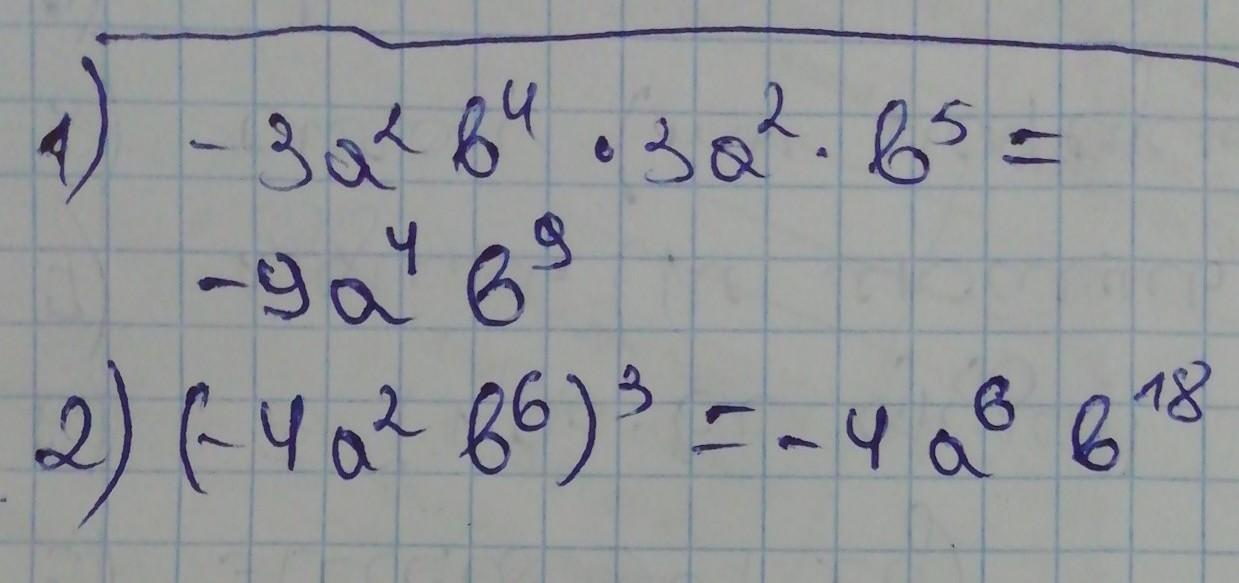 1) -3a² b⁴ · 3a² · b⁵ =
-9a⁴ b⁹
2) (-4a² b⁶)³ = -4a⁶ b¹⁸